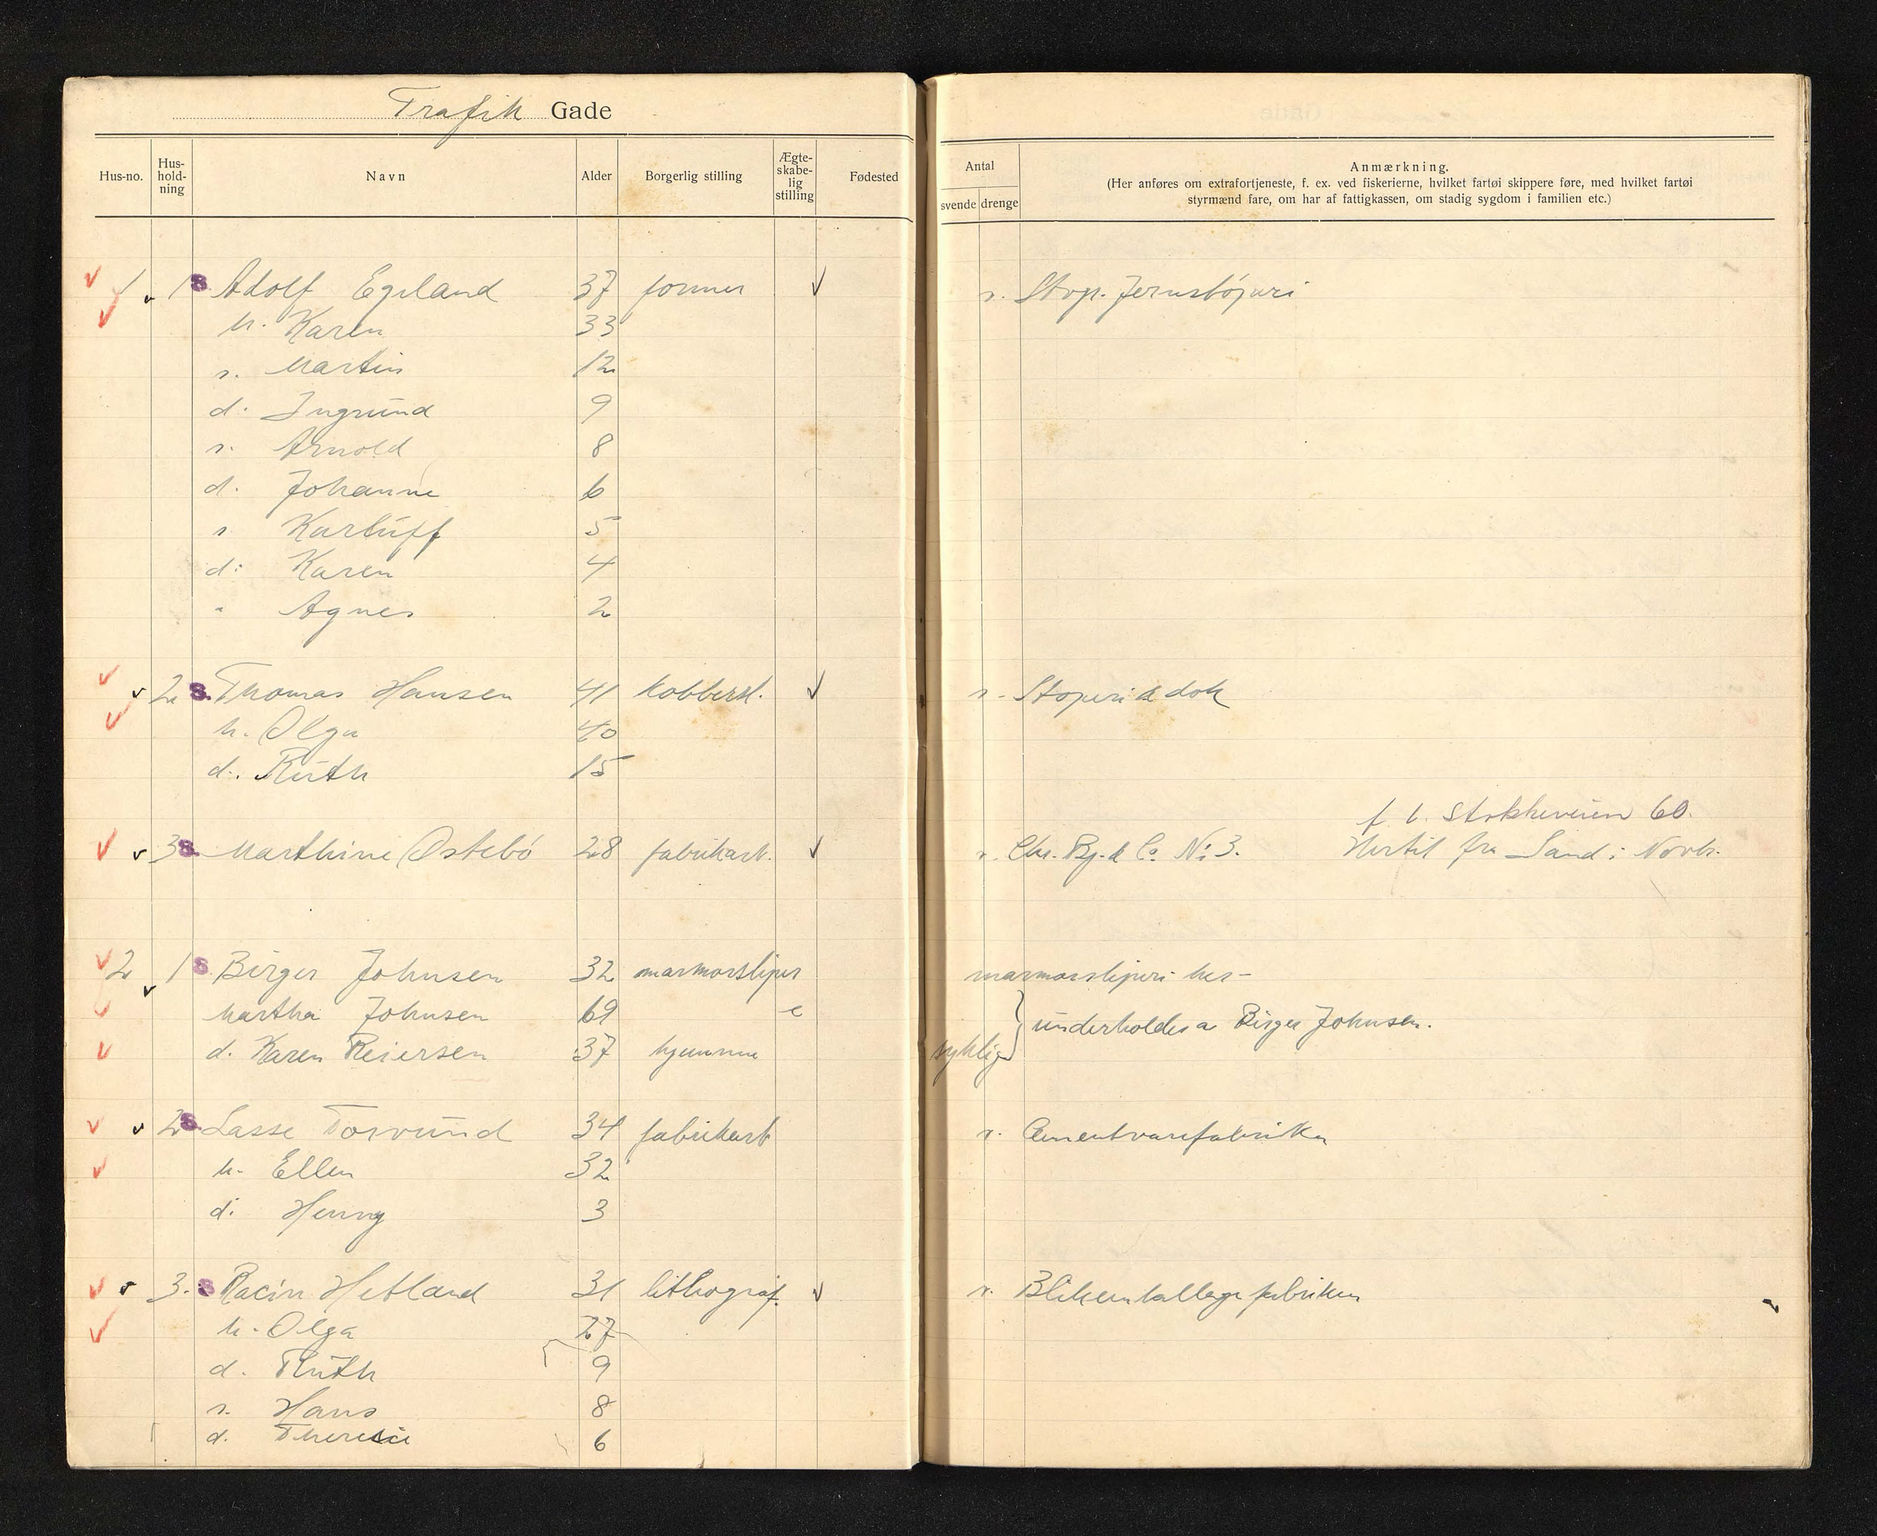 Trafik Gade
Hus-no. Hus-hold-ning Navn Alder Borgerlig stilling Ægte-skabe-lig stilling Fødested
Antal
svende drenge
Anmærkning.
(Her anføres om extrafortjeneste, f. ex. ved fiskerierne, hvilket fartøi skippere føre, med hvilket fartøi
styrmænd fare, om har af fattigkassen, om stadig sygdom i familien etc.)
1 1 S Adolf Egeland 37 former
h. Karen 33
s. Martin 12
d. Ingrund 9
s. Arnold 8
d. Johanne 6
s Karluff 5
d. Karen 4
" Agnes 2
2 S. Thomas Hansen 41 kobbersl. Støperi & dok
h. Olga 40
d. Ruth 15
f. b. Stokkeveien 60.
3 S. Marthine Østebö 28 fabrikarb. Chr. Bj. & Co No 3. Hertil fra Sand i Novbr.
2 1 S Birger Johnsen 32 marmorsliper marmorsliperi her
Martha Johnsen 69 e underholdes a Birger Johnsen.
d. Karen Reiersen 37 hjemme syklig
2 S. Lasse Torvund 34 fabrikarb Cementvarefabriken
h. Ellen 32
d. Henny 3
3. S Racin Hetland 31 lithograf. Blikemballagefabriken
h. Olga 27
d. Ruth 9
s. Hans 8
d. Therese 6